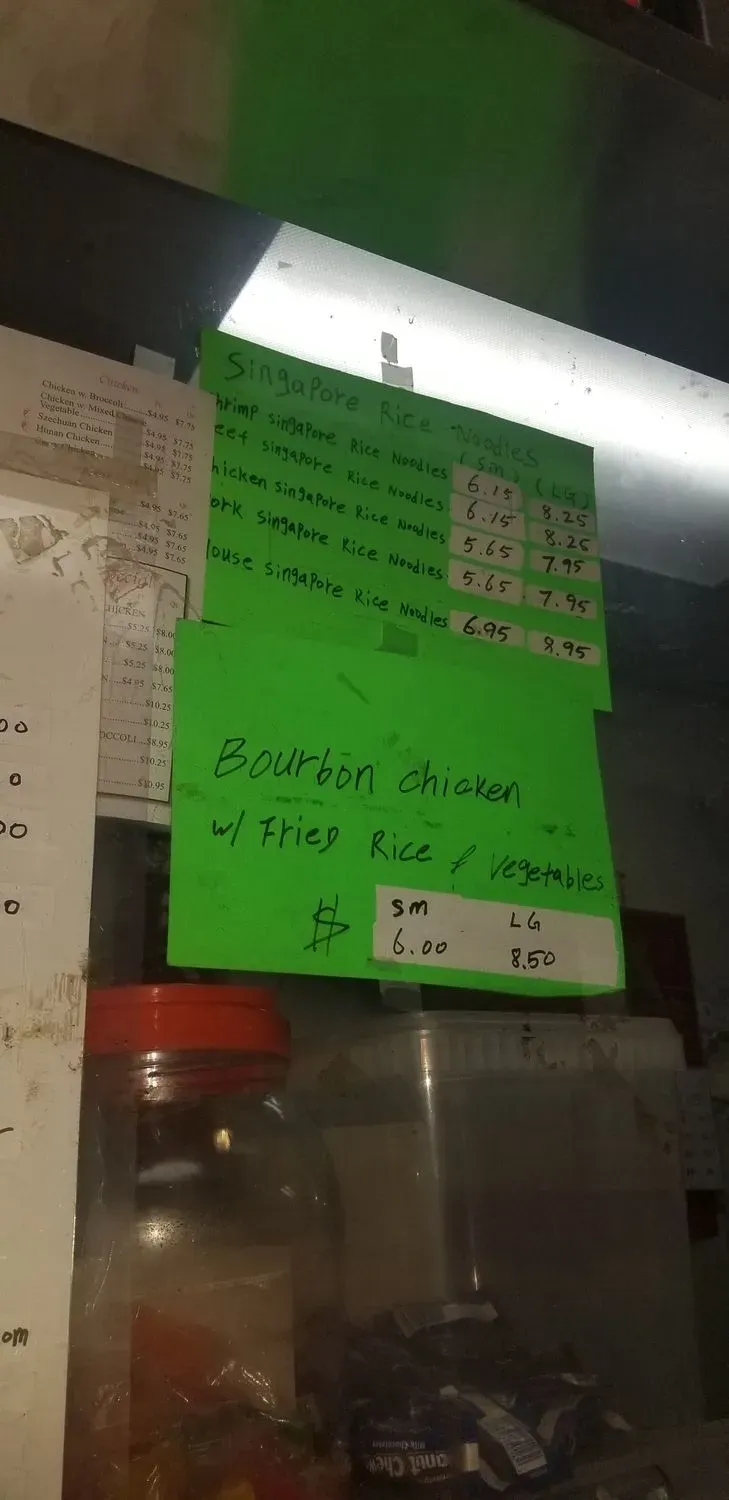 Chicken
Chicken w. Broccoli $4.95 $7.75
Chicken w. Mixed
Vegetable $4.95 $7.75
Szechuan Chicken $4.95 $7.75
Hunan Chicken $4.95 $7.75
$4.95 $7.65
$4.95 $7.65
$4.95 $7.65
$4.95 $7.65
HICKEN
$5.25 $8.00
$5.25 $8.00
$5.25 $8.00
N $4.95 $7.65
$10.25
$10.25
OCCOLI $8.95
$10.25
$10.95
Singapore Rice Noodles
(sm) (LG)
hrimp singapore Rice Noodles 6.15 8.25
eef singapore Rice Noodles 6.15 8.25
hicken singapore Rice Noodles 5.65 7.95
ork singapore Rice Noodles 5.65 7.95
ouse singapore Rice Noodles 6.95 8.95
Bourbon chicken
w/ Fried Rice & vegetables
$
SM LG
6.00 8.50
00
0
00
0
om
anut Chew
Milk Chocolatey